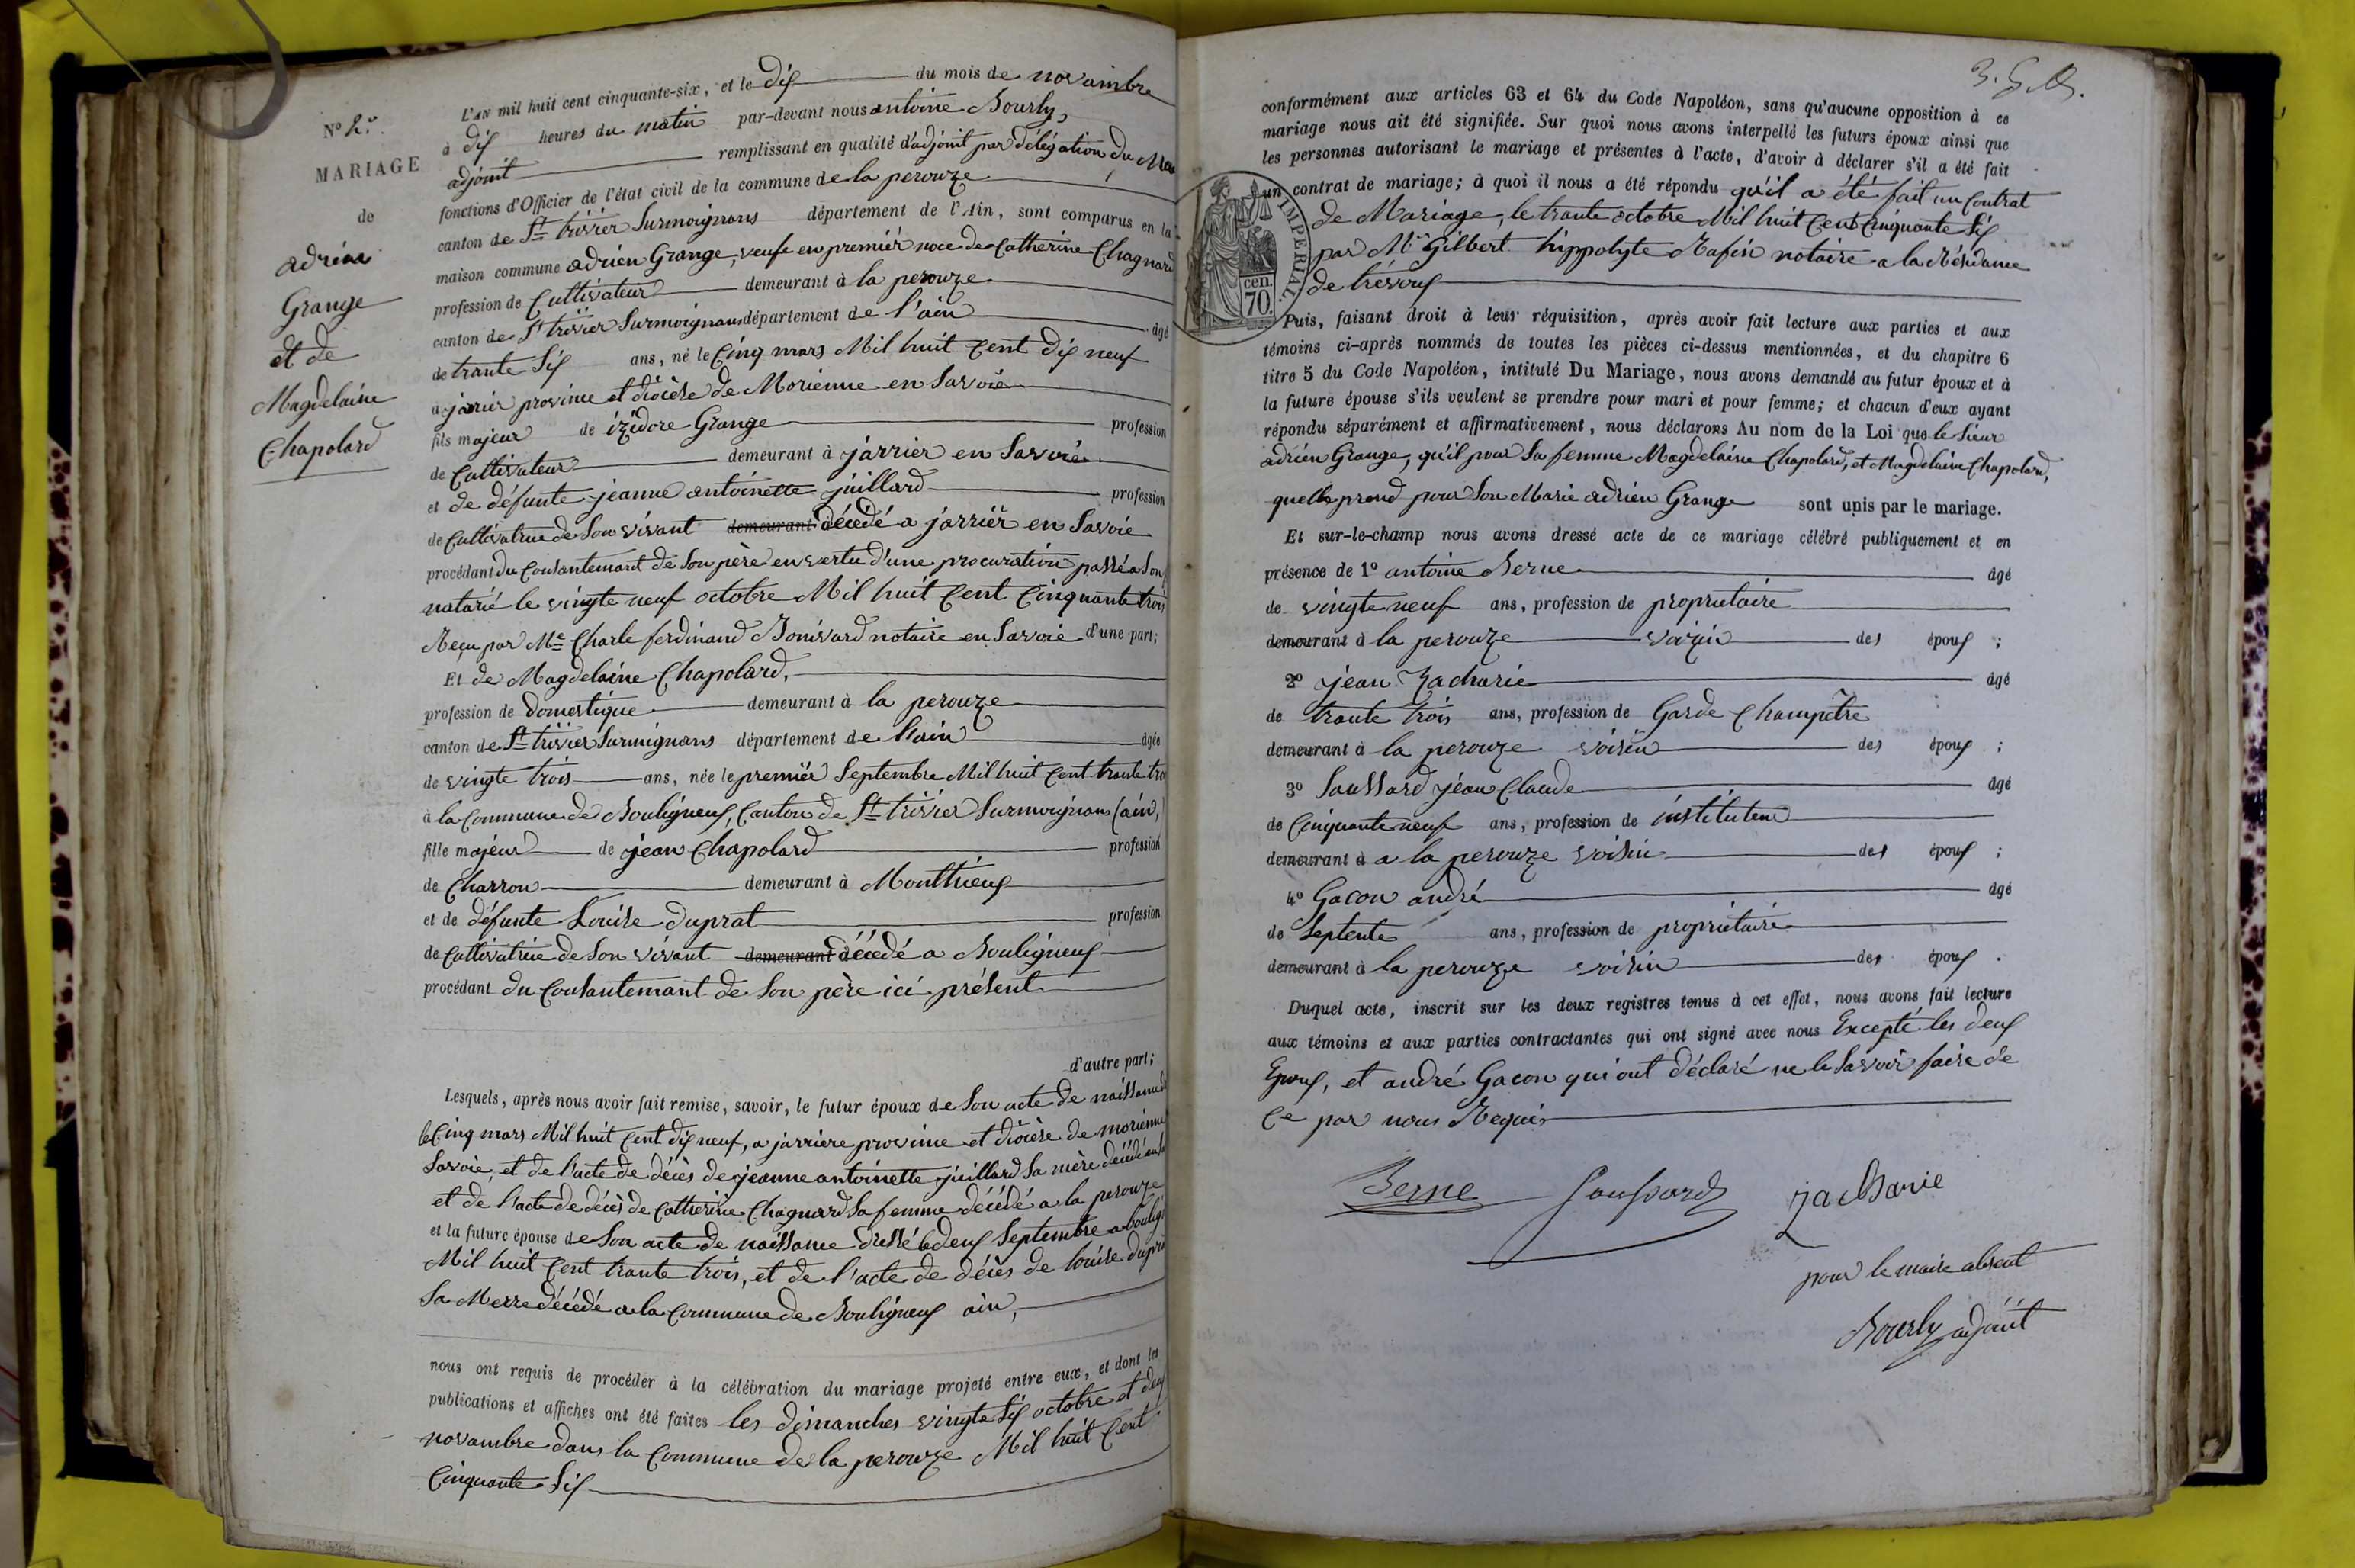 N° 2.
MARIAGE
de
adrien
Grange
et de
Magdelaine
Chapolard
L'AN mil huit cent cinquante-six, et le dix du mois de novambre
à dix heures du matin par-devant nous antoine Bourly,
adjoint remplissant en qualité d'adjoint par délégation du
fonctions d'Officier de l'état civil de la commune de la perouze
canton de St trivier Surmoignans département de l'Ain, sont comparus en la
maison commune adrien Grange, veufe en premier noce de Catherine Chagnard
profession de Cultivateur demeurant à la perouze
canton de St trivier Surmoignans département de l'ain âgé
de trante Six ans, né le Cinq mars Mil huit Cent dix neuf
a jarrier province et diocèse de Morienne en Savoie
fils majeur de izidore Grange profession
de Cultivateur demeurant à jarrier en Savoie
et de défunte jeanne antoinette juillard profession
de Cultivatrice de Son vivant demeurant décédé a jarrier en Savoie
procédant du Consantemant de Son père en vertu d'une procuration passé a Son
notarié le vingte neuf octobre Mil huit Cent Cinquante trois
Reçu par Me Charle ferdinand Bonivard notaire en Savoie d'une part;
Et de Magdelaine Chapolard,
profession de domestique demeurant à la perouze
canton de St trivier Surmignans département de l'ain âgée
de vingte trois ans, née le premier Septembre Mil huit Cent trante
à la Commune de Bouligneux, Canton de St trivier Surmoignans (ain,)
fille majeur de jean Chapolard profession
de Charron demeurant à Monthieux
et de défunte Louise duprat profession
de Cultivatrice de Son vivant demeurant décédé a Bouligneux
procédant du Consantemant de Son père ici présent
d'autre part;
Lesquels, après nous avoir fait remise, savoir, le futur époux de Son acte de naissance
le Cinq mars Mil huit Cent dix neuf, a jarriere province et diocèse de morienne
Savoie, et de l'acte de décès de jeanne antoinette juillard Sa mère décédé
et de l'acte de décès de Catherine Chagnard Sa femme décédé a la perouze
et la future épouse de Son acte de naissance dressé le deux Septembre a
Mil huit Cent trante trois, et de l'acte de décès de Louise
Sa Merre décédé a la Commune de Bouligneux ain,
nous ont requis de procéder à la célébration du mariage projeté entre eux, et dont les
publications et affiches ont été faites les dimanches vingte Six octobre et deux
novambre dans la Commune de la perouze Mil huit Cent
Cinquante Six
conformément aux articles 63 et 64 du Code Napoléon, sans qu'aucune opposition à ce
mariage nous ait été signifiée. Sur quoi nous avons interpellé les futurs époux ainsi que
les personnes autorisant le mariage et présentes à l'acte, d'avoir à déclarer s'il a été fait
un contrat de mariage; à quoi il nous a été répondu qu'il a été fait un Contrat
de Mariage, le trante octobre Mil huit Cent Cinquante Six
par Me Gilbert hippolyte Rafin notaire a la Résidance
de trévoux
IMPERIAL.
cen.
70.
Puis, faisant droit à leur réquisition, après avoir fait lecture aux parties et aux
témoins ci-après nommés de toutes les pièces ci-dessus mentionnées, et du chapitre 6
titre 5 du Code Napoléon, intitulé Du Mariage, nous avons demandé au futur époux et à
la future épouse s'ils veulent se prendre pour mari et pour femme; et chacun d'eux ayant
répondu séparément et affirmativement, nous déclarons Au nom de la Loi que le Sieur
adrien Grange, qu'il pour Sa femme Magdelaine Chapolard, et Magdelaine Chapolard,
quelle prend pour Son Marie adrien Grange sont unis par le mariage.
Et sur-le-champ nous avons dressé acte de ce mariage célébré publiquement et en
présence de 1° antoine Berne âgé
de vingte neuf ans, profession de propriétaire
demeurant à la perouze voizin des époux ;
2° jean Zacharie âgé
de trante trois ans, profession de Garde Champêtre
demeurant à la perouze voisin des époux ;
3° Saussard jean Claude âgé
de Cinquante neuf ans, profession de instituteur
demeurant à a la perouze voisin des époux ;
4° Gacon andré âgé
de Septente ans, profession de propriétaire
demeurant à la perouze voisin des époux .
Duquel acte, inscrit sur les deux registres tenus à cet effet, nous avons fait lecture
aux témoins et aux parties contractantes qui ont signé avec nous Excepté les deux
Epoux, et andré Gacon qui ont déclaré ne le Savoir faire de
Ce par nous Requis
Berne Saussard zacharie
pour le maire absent
Bourly adjoint